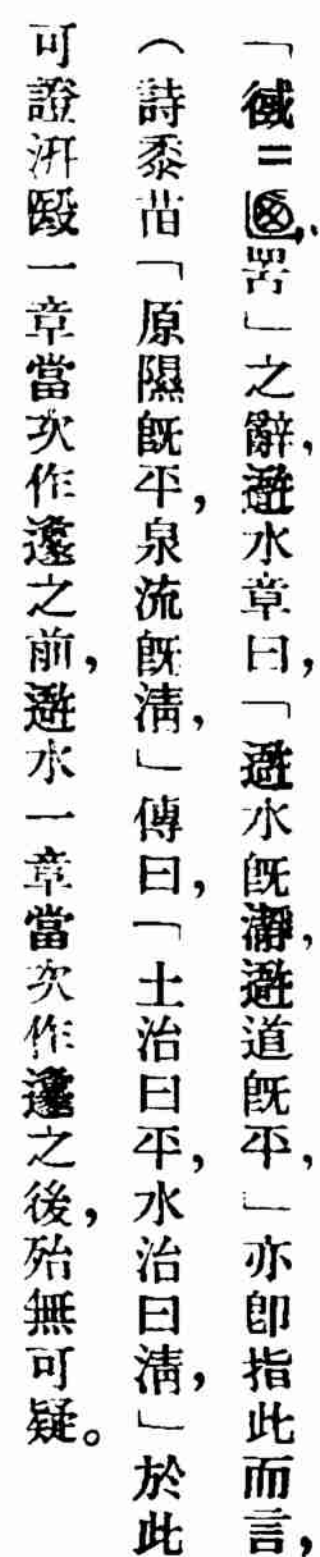 「=罟」之辭,水章曰,「水既瀞,道既平,」亦即指此而言,
(詩黍苗「原隰既平,泉流既清,」傳曰,「土治曰平,水治曰清,」於此
可證汧殹一章當次作邍之前,水一章當次作邍之後,殆無可疑。